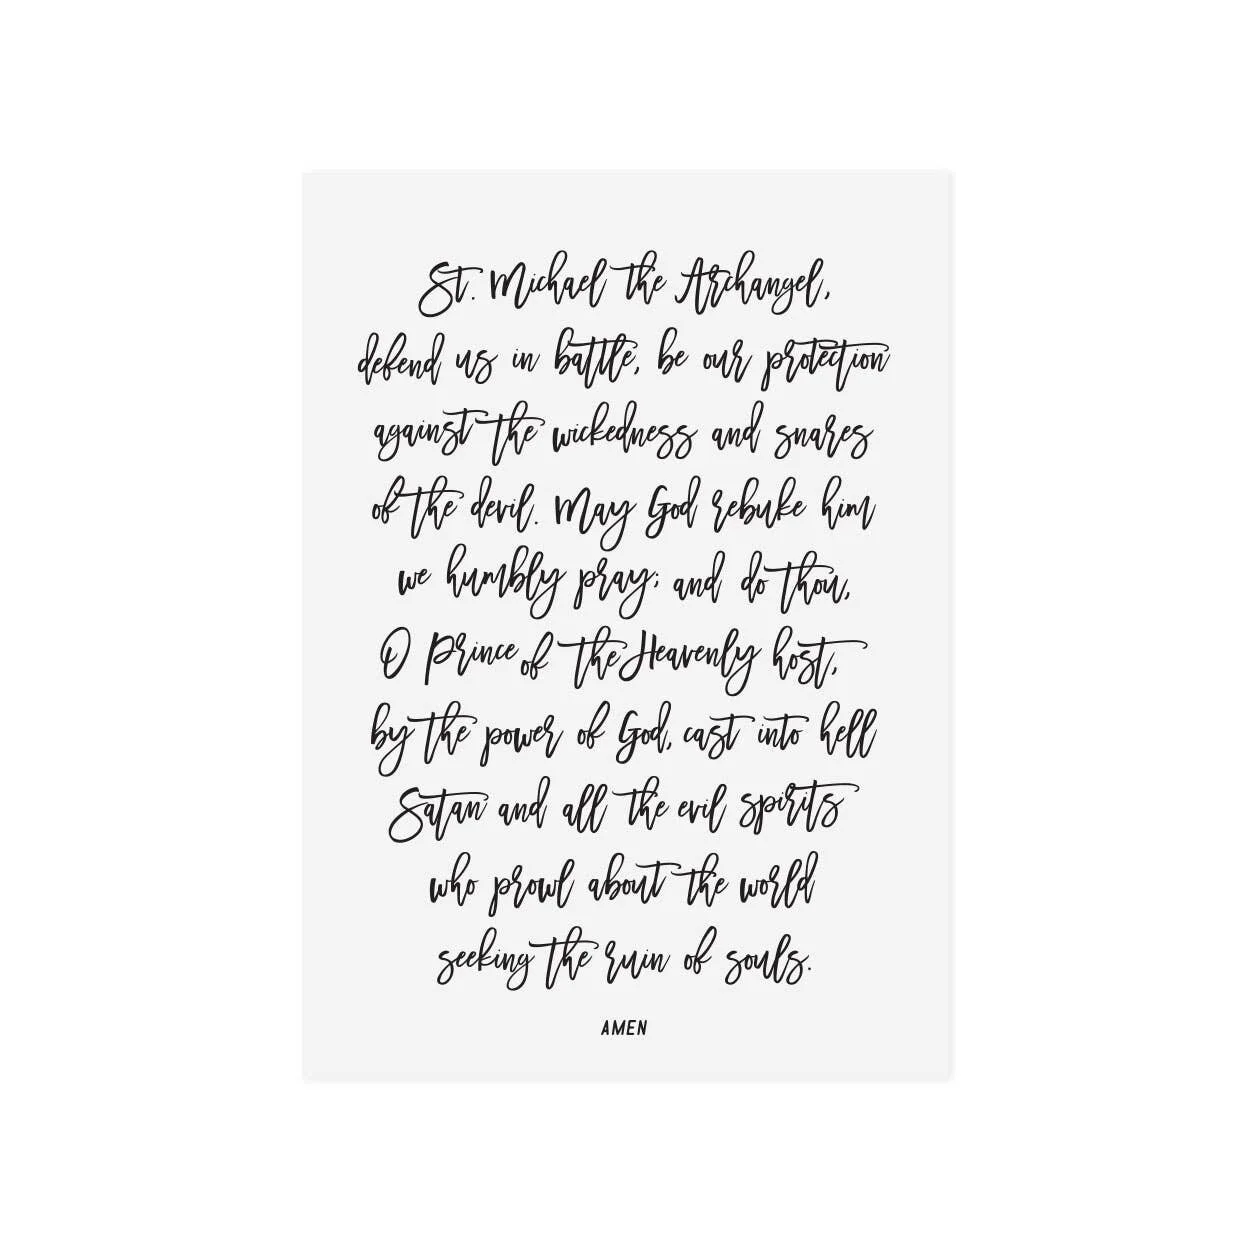 St. Michael the Archangel,
defend us in battle, be our protection
against the wickedness and snares
of the devil. May God rebuke him
we humbly pray; and do thou,
O Prince of the Heavenly host,
by the power of God, cast into hell
Satan and all the evil spirits
who prowl about the world
seeking the ruin of souls.
AMEN